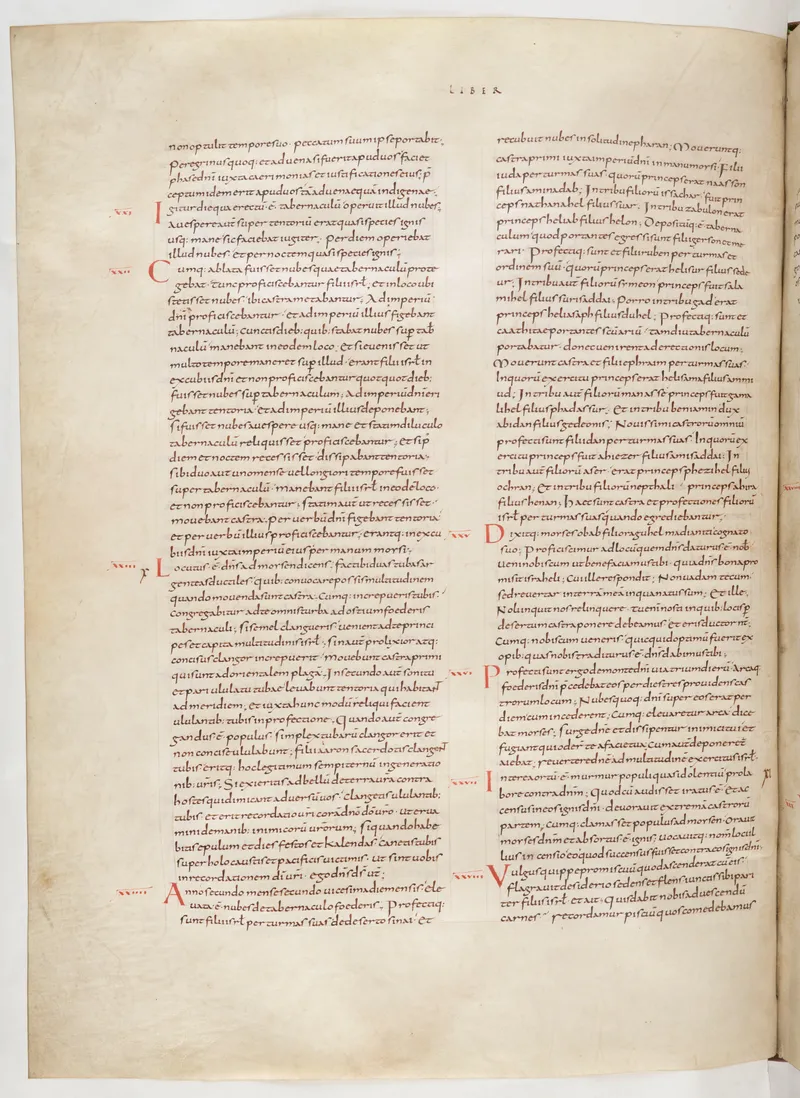 LIBER
non optulit tempore suo· peccatum suum ipse portabit·
Peregrinus quoq: et aduena si fuerit apud uos faciet
phase dnī iuxta caerimonias et iustificationes eius; p̄
ceptum idem erit apud uos tā aduenae quā indigenae·
xxi Igitur die qua erectū ē· tabernaculū operuit illud nubes·
A uespere aut̄ super tentoriū erat quasi species ignis
usq: mane sic fiebat iugiter; Per diem operiebat
illud nubes· et per noctem quasi species ignis;
xxii Cumq: ablata fuisset nubes quae tabernaculū prote
gebat· tunc proficiscebantur filii isrł· et in loco ubi
stetisset nubes ibi castra metabantur; Ad imperiū
dnī proficiscebantur· et ad imperiū illius figebant
tabernaculū; cunctis dieb: quib: stabat nubes sup tab
naculū manebant in eodem loco· et si euenisset ut
multo tempore maneret sup illud· erant filii isrł in
excubiis dnī et non proficiscebantur quotquot dieb:
fuisset nubes sup tabernaculum; Ad imperiū dnī eri
gebant tentoria· et ad imperiū illius deponebant;
si fuisset nubes a uespere usq: mane· et statim diluculo
tabernaculū reliquisset proficiscebantur; et si p̄
diem et noctem recessisset dissipabant tentoria·
si biduo aut uno mense uel longiori tempore fuisset
super tabernaculū· manebant filii isrł in eodē loco·
et non proficiscebantur; statim aut̄ ut recessisset·
mouebant castra; per uerbū dnī figebant tentoria·
et per uerbū illius proficiscebantur; erantq: in excu
biis dnī iuxta imperiū eius per manum morsi;
xxiii Locutus ē· dns ad morsen dicens; fac tibi duas tubas ar
genteas ductiles quib: conuocare possis multitudinem
quando mouenda sunt castra; Cumq: increpueris tubis·
congregabitur ad te omnis turba ad ostium foederis
tabernaculi; si semel clangueris· uenient ad te princi
pes et capita multitudinis isrł· sin aut̄ prolixior atq:
concisus clangor increpuerit· mouebunt castra primi
qui sunt ad orientalem plagā· In secundo aut̄ sonitu
et pari ululatu tubae leuabunt tentoria qui habitant
ad meridiem; et iuxta hunc modū reliqui facient
ululantib: tubis in profectione· Quando aut̄ congre
gandus ē· populus· simplex tubarū clangor erit et
non concise ululabunt; filii aaron sacerdotis clangent
tubis eritq: hoc legitimum sempiternū in generatio
nib: urīs; Si exieritis ad bellū de terra urā contra
hostes qui dimicant aduersū uos· clangetis ululantib:
tubis· et erit recordatio uri corā dno dō urō· ut erua
mini de manib: inimicorū urorum; si quando habe
bitis epulum et dies festos et kalendas· canetis tubis
super holocaustis et pacificis uictimis· ut sint uobis
in recordationem di uri· ego dns ds ur;
xxiiii Anno secundo mense secundo uicesima die mensis· ele
uata ē· nubes de tabernaculo foederis; Profectiq:
sunt filii isrł per turmas suas de deserto sinai· et
recubuit nubes in solitudine pharan; Mouerunt q:
castra primi iuxta imperiū dnī in manu morsi· Filii
iuda per turmas suas quorū princeps erat naasson
filius aminadab; In tribu filiorū isachar· fuit prin
ceps nathanahel filius suar; In tribu zabulon erat
princeps heliab filius helon; Depositūq: ē· taberna
culum quod portantes egressi sunt filii gerson et me
rari· Profectiq: sunt et filii ruben per turmas et
ordinem suū· quorū princeps erat helisur filius sede
ur; In tribu aut̄ filiorū simeon princeps fuit sala
mihel filius surisaddai; Porro in tribu gad erat
princeps heliasaph filius duhel; Profectiq: sunt et
caathitae portantes sc̄uariū· tamdiu tabernaculū
portabatur· donec uenirent ad erectionis locum;
Mouerunt castra et filii ephraim per turmas suas·
In quorū exercitu princeps erat helisama filius ammi
ud; In tribu aut̄ filiorū manasse princeps fuit gama
lihel filius phadassur; Et in tribu beniamin dux
abidan filius gedeonis; Nouissimi castrorū omniū
profecti sunt filii dan per turmas suas· In quorū ex
ercitu princeps fuit ahiezer filius amisaddai; In
tribu aut̄ filiorū aser· erat princeps phegihel filius
ochran; Et in tribu filiorū nepthali· princeps ahira
filius henan; Haec sunt castra et profectiones filiorū
isrł per turmas suas quando egrediebantur;
xxv Dixitq: morses obab filio raguhel madianitae cognato
suo; Proficiscimur ad locū quem dns daturus ē· nob·
ueni nobiscum ut benefaciamus tibi· quia dns bona pro
misit israheli; Cui ille respondit; Non uadam tecum·
sed reuertar in terrā meā in qua natus sum; Et ille·
Noli inquit nos relinquere· tu enim nosti in quib: locis p̄
desertum castra ponere debeamus· et eris ductor nr̄;
Cumq: nobiscum ueneris· quicquid optimū fuerit ex
opib: quas nobis traditurus ē· dns dabimus tibi;
xxvi Profecti sunt ergo de monte dnī uiā trium dierū· Arcaq:
foederis dnī p̄cedebat eos per dies tres prouidens cas
trorum locum; Nubes quoq: dnī super eos erat per
diem cum incederent; Cumq: eleuaretur arca· dice
bat morses; surge dne et dissipentur inimici tui et
fugiant qui oder̄ te a facie tua; cum aut̄ deponeret̄
aiebat; reuertere dne ad multitudinē exercitus isrł·
xxvii Interea ortū ē· murmur populi quasi dolentiū pro la
bore contra dnm; Quod cū audisset iratus ē· et ac
census in eos ignis dnī· deuorauit extremā castrorū
partem; Cumq: clamasset populus ad morsen· orauit
morses dnm et absortus ē· ignis; uocauitq: nom̄ loci il
lius incensio eo quod succensus fuisset contra eos ignis dnī·
xxviii Vulgus quippe promiscuū quod ascenderat cū eis·
flagrauit desiderio sedens et flens iunctis sibi pari
ter filiis isrł· et ait; Quis dabit nobis ad uescendū
carnes· recordamur pisciū quos comedebamus